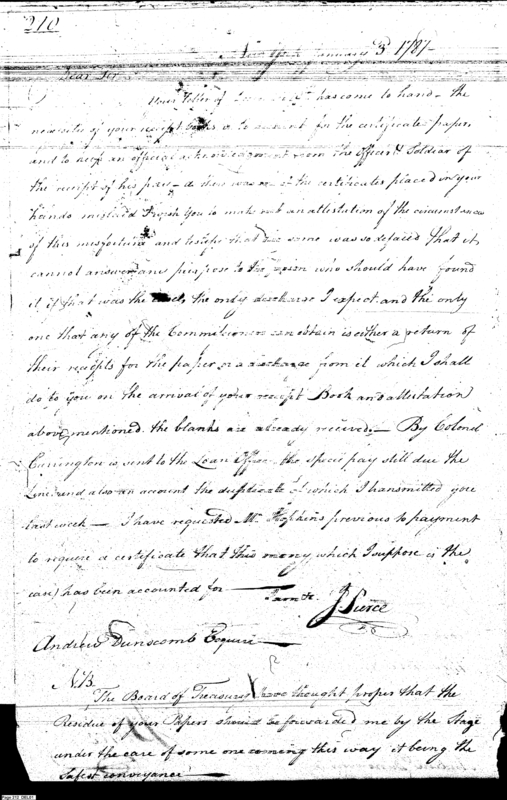 210
New York January 3 1787-
Dear Sir
Your letter of has come to hand - the
necessity of your receipt books is to account for the certificate paper
and to be an official acknowledgment from the Officer & Soldier of
the receipt of his pay - as there was one of the certificates placed in your
hands mislaid I wish you to make out an attestation of the circumstances
of this misfortune and testify that the same was so defaced that it
cannot answer any purpose to the person who should have found
it if that was the the only discharge I expect and the only
one that any of the Commissioners can obtain is either a return of
their receipts for the paper or a discharge from it which I shall
do to you on the arrival of your receipt Book and attestation
above mentioned. the blanks are already received. - By Colonel
Carrington is sent to the Loan Office the specie pay still due the
Line and also an account the duplicate of which I transmitted you
last week - I have requested Mr Hopkins previous to payment
to require a certificate that this money, which I suppose is the
case) has been accounted for
I am &c. J Pierce
Andrew Dunscomb Esquire
N.B.
The Board of Treasury have thought proper that the
Residue of your Papers should be forwarded me by the Stage
under the care of some one coming this way it being the
safest conveyance